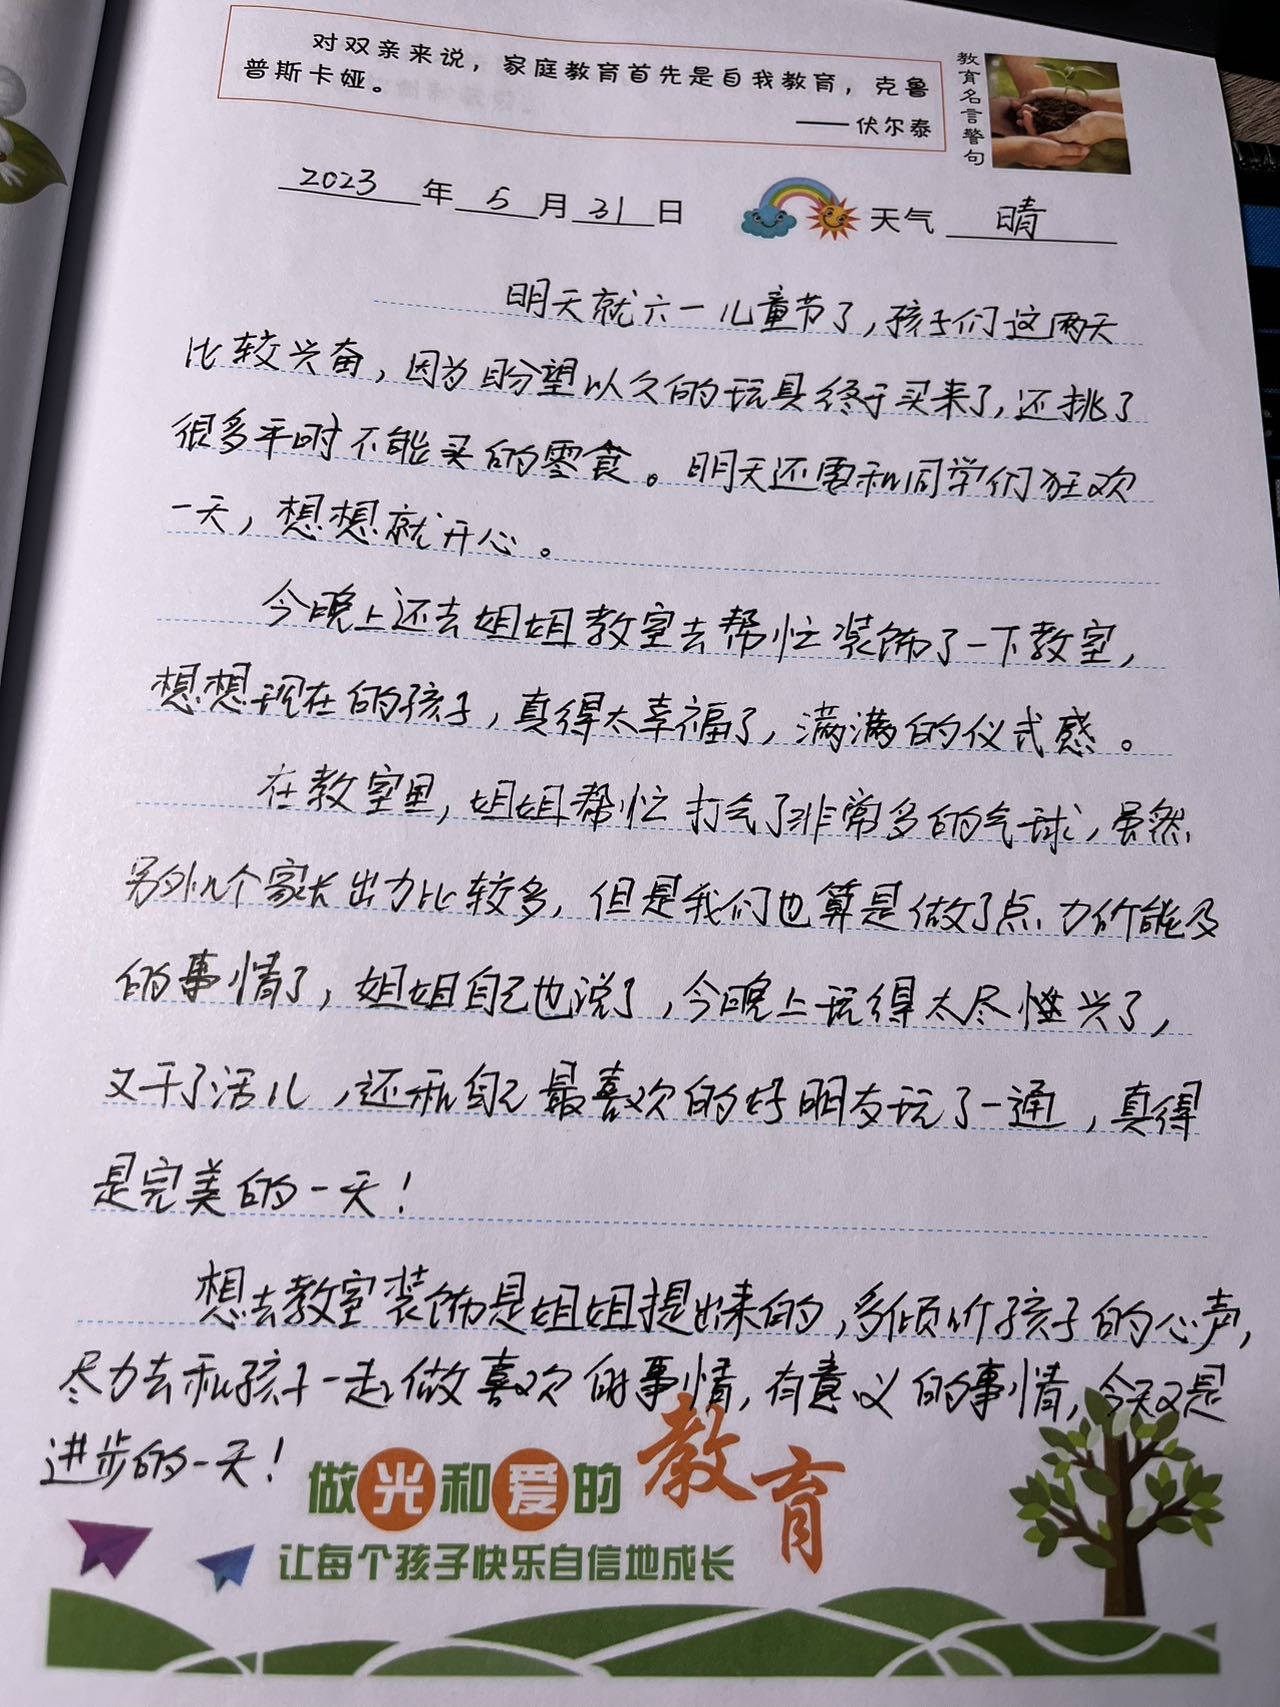 对双亲来说，家庭教育首先是自我教育，克鲁
普斯卡娅。
——伏尔泰
教育名言警句
2023年5月31日 天气 晴
明天就六一儿童节了，孩子们这两天
比较兴奋，因为盼望以久的玩具终于买来了，还挑了
很多平时不能买的零食。明天还要和同学们狂欢
一天，想想就开心。
今晚上还去姐姐教室去帮忙装饰了一下教室，
想想现在的孩子，真得太幸福了，满满的仪式感。
在教室里，姐姐帮忙打气了非常多的气球，虽然
另外几个家长出力比较多，但是我们也算是做了点力所能及
的事情了，姐姐自己也说了，今晚上玩得太尽兴了，
又干了活儿，还和自己最喜欢的好朋友玩了一通，真得
是完美的一天！
想去教室装饰是姐姐提出来的，多倾听孩子的心声，
尽力去和孩子一起做喜欢的事情，有意义的事情，今天又是
进步的一天！
做光和爱的教育
让每个孩子快乐自信地成长